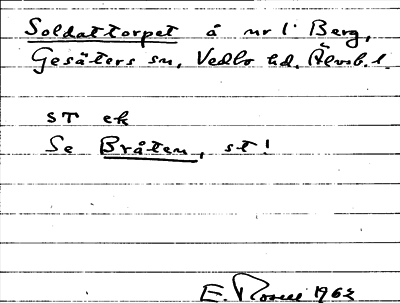 Soldattorpet å nr 1 i Berg,
Gesäters sn, Vedbo hd. Älvsb. l.
ST ek
Se Bråten, st!
E. Rosell 1962